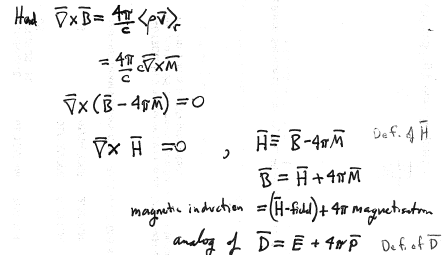 Had ∇̄×B̄ = 4π/c ⟨ρv̄⟩_r
= 4π/c c∇̄×M̄
∇̄×(B̄-4πM̄) = 0
∇̄× H̄ = 0 , H̄ ≡ B̄-4πM̄ Def. of H̄
B̄ = H̄+4πM̄
magnetic induction = (H̄-field)+4π magnetization
analog of D̄ = Ē + 4πP̄ Def. of D̄